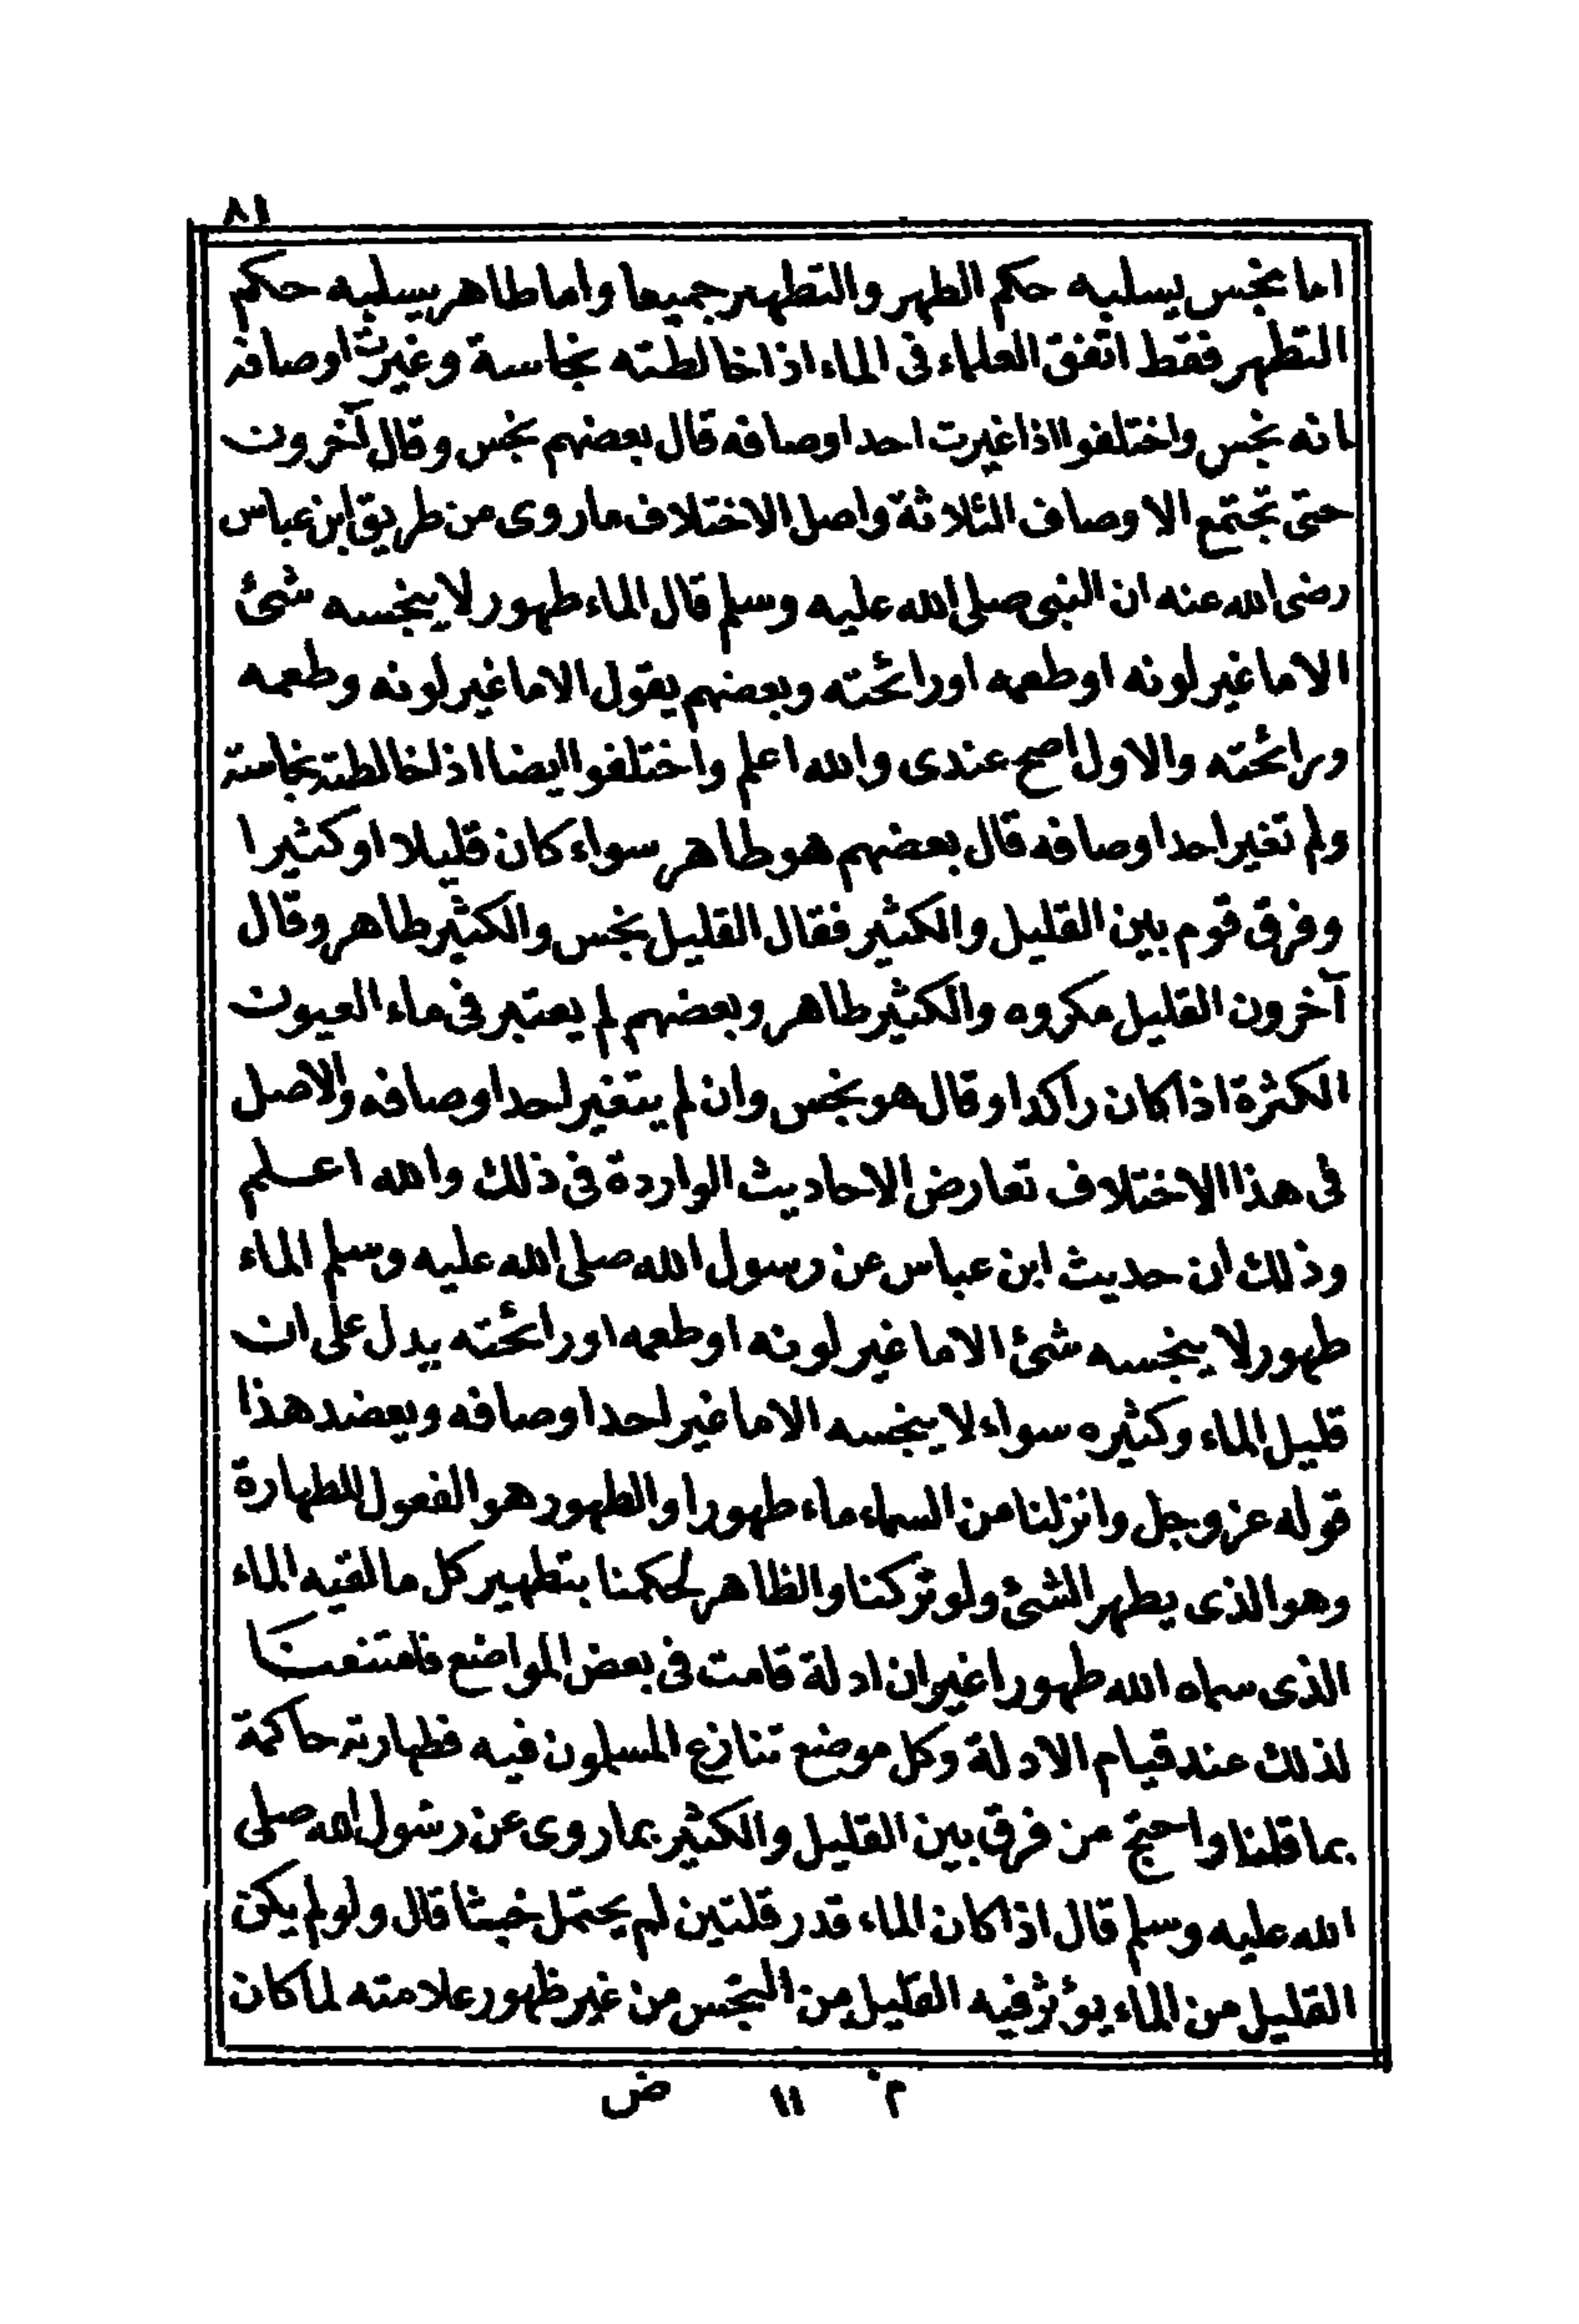 ٨١
اما نجس يسلبه حكم الطهر والتطهير جميعا واما طاهر يسلبه حكم
التطهير فقط اتفق العلماء فى الماء اذا خالطته نجاسة وغيرت اوصافه
انه نجس واختلفوا اذا غيرت احد اوصافه قال بعضهم نجس وقال آخرون
حتى تجتمع الاوصاف الثلاثة واصل الاختلاف ماروى من طريق ابن عباس
رضى الله عنه ان النبى صلى الله عليه وسلم قال الماء طهور لا ينجسه شئ
الا ما غير لونه او طعمه او رائحته وبعضهم يقول الا ما غير لونه وطعمه
ورائحته والاول اصح عندى والله اعلم واختلفوا ايضا اذا خالطته نجاسة
ولم تغير احد اوصافه قال بعضهم هو طاهر سواء كان قليلا او كثيرا
وفرق قوم بين القليل والكثير فقال القليل نجس والكثير طاهر وقال
آخرون القليل مكروه والكثير طاهر وبعضهم لم يعتبر فى ماء العيون
الكثرة اذا كان راكدا وقال هو نجس وان لم يتغير احد اوصافه والاصل
فى هذا الاختلاف تعارض الاحاديث الواردة فى ذلك والله اعلم
وذلك ان حديث ابن عباس عن رسول الله صلى الله عليه وسلم الماء
طهور لا ينجسه شئ الا ما غير لونه او طعمه او رائحته يدل على ان
قليل الماء وكثيره سواء لا ينجسه الا ما غير احد اوصافه ويعضد هذا
قوله عز وجل وانزلنا من السماء ماء طهورا والطهور هو الفعول للطهارة
وهو الذى يطهر الشئ ولو تركنا والظاهر لحكمنا بتطهير كل ما لقيه الماء
الذى سماه الله طهورا غير ان ادلة قامت فى بعض المواضع فامتنعنا
لذلك عند قيام الادلة وكل موضع تنازع المسلمون فيه فطهارته حاكمة
بما قلنا واحتج من فرق بين القليل والكثير بما روى عن رسول الله صلى
الله عليه وسلم قال اذا كان الماء قدر قلتين لم يحتمل خبثا قال ولو لم يكن
القليل من الماء يؤثر فيه القليل من النجس من غير ظهور علامته لما كان
م ١١ ض